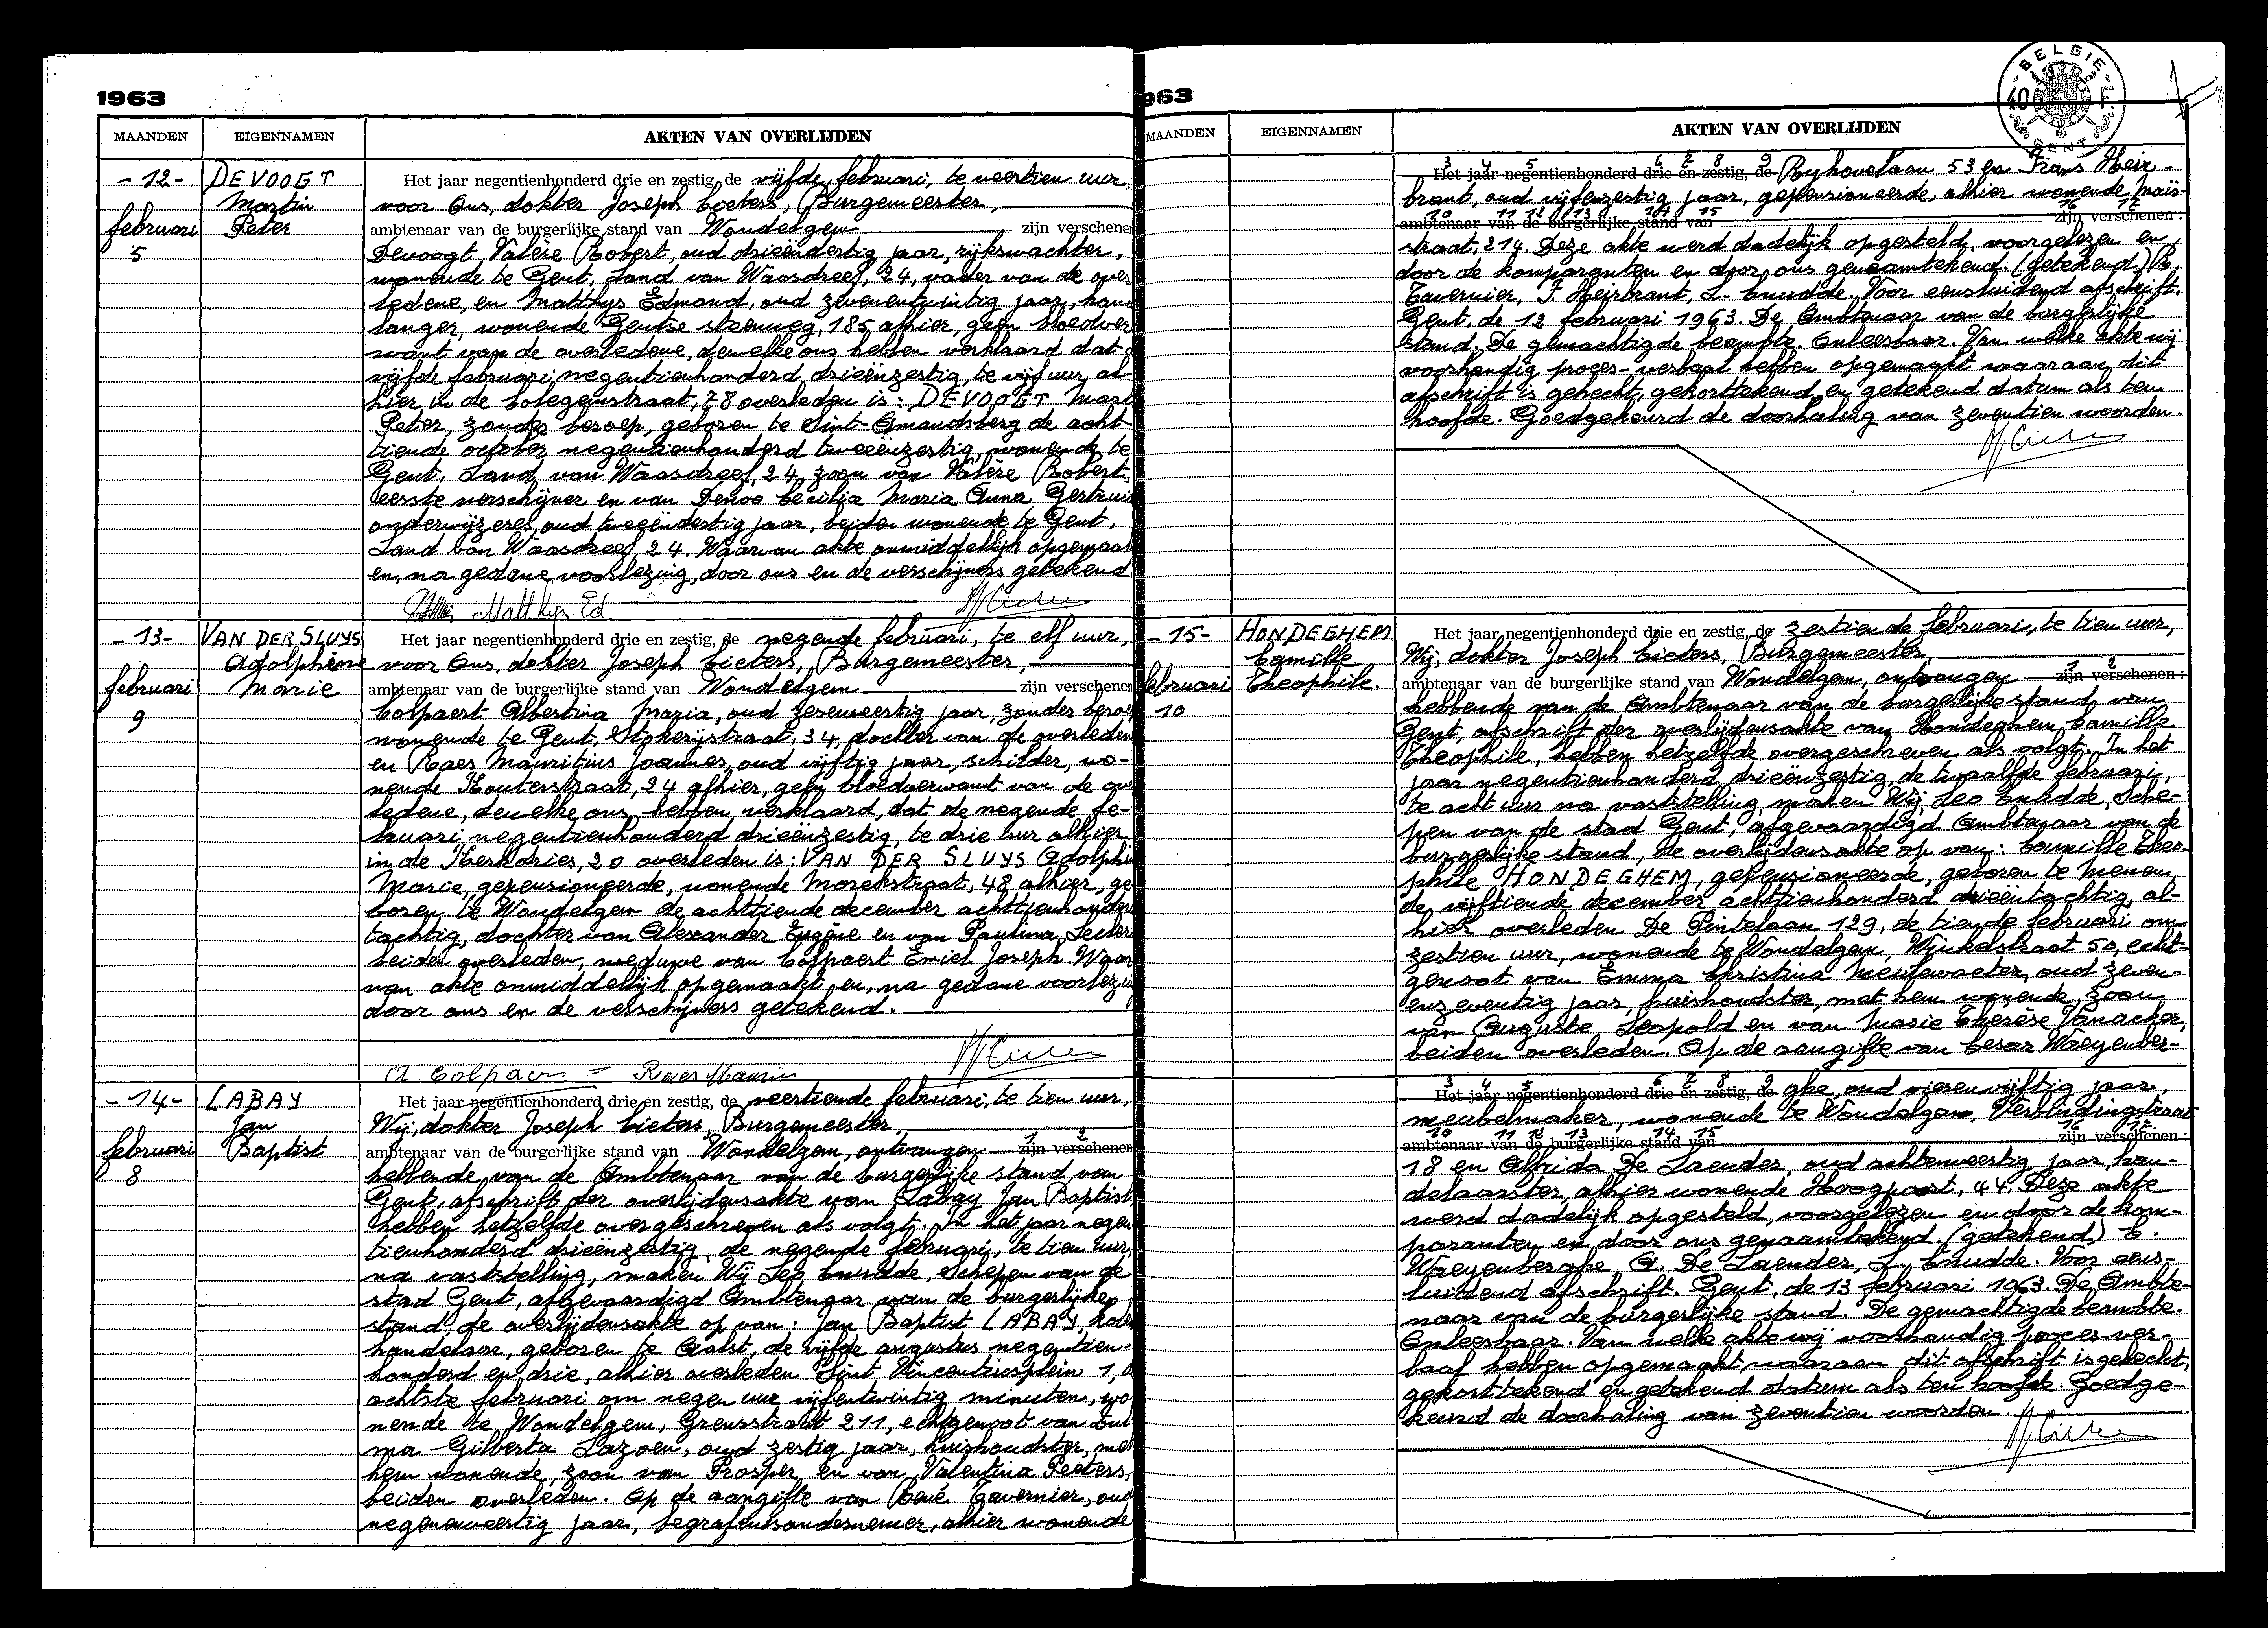 1963
MAANDEN EIGENNAMEN AKTEN VAN OVERLIJDEN
-12- DEVOOGT Martin Peter
februari 5
Het jaar negentienhonderd drie en zestig, de vijfde februari, te veertien uur,
voor Ons, dokter Joseph Cieters, Burgemeester,
ambtenaar van de burgerlijke stand van Wondelgem zijn verschenen
Devoogt Valère Robert, oud drieëndertig jaar, rijkswachter,
wonende te Gent, Land van Waasdreef, 24, vader van de over
ledene, en Matthys Edmond, oud zevenentwintig jaar, hand
langer, wonende Gentse steenweg, 185, alhier, geen bloedver
want van de overledene, dewelke ons hebben verklaard dat
vijfde februari negentienhonderd drieënzestig, te vijf uur al
hier in de Colegemstraat, 78 overleden is: DEVOOGT Mart
Peter, zonder beroep, geboren te Sint-Amandsberg de acht
tiende october negentienhonderd tweeënzestig, wonende te
Gent, Land van Waasdreef, 24, zoon van Valère Robert,
eerste verschijner en van Devos Cecilia Maria Anna Gertrui
onderwijzeres, oud tweeëndertig jaar, beiden wonende te Gent,
Land van Waasdreef, 24. Waarvan akte onmiddellijk opgemaa
en, na gedane voorlezing, door ons en de verschijners getekend
Matthys Ed
-13- VAN DER SLUYS Adolphine Marie
februari 9
Het jaar negentienhonderd drie en zestig, de negende februari, te elf uur,
voor Ons, dokter Joseph Cieters, Burgemeester,
ambtenaar van de burgerlijke stand van Wondelgem zijn verschenen
Colpaert Albertina Maria, oud zesenveertig jaar, zonder beroe
wonende te Gent, Stokerijstraat, 34, dochter van de overleden
en Raes Mauritius Joannes, oud vijftig jaar, schilder, wo-
nende Kouterstraat, 24 alhier, geen bloedverwant van de ove
ledene, dewelke ons hebben verklaard, dat de negende fe-
bruari negentienhonderd drieënzestig, te drie uur alhier
in de Kerkdries, 20 overleden is: VAN DER SLUYS Adolphi
Marie, gepensioneerde, wonende Morekstraat, 48 alhier, ge
boren te Wondelgem de achttiende december achttienhonderd
tachtig, dochter van Alexander Eugène en van Paulina
beiden overleden, weduwe van Colpaert Emiel Joseph. Waar
van akte onmiddellijk opgemaakt, en, na gedane voorlezin
door ons en de verschijners getekend.
A Colpaert - Raes Mauric
-14- LABAY Jan Baptist
februari 8
Het jaar negentienhonderd drie en zestig, de veertiende februari, te tien uur,
Wij, dokter Joseph Cieters, Burgemeester,
ambtenaar van de burgerlijke stand van Wondelgem, ontvangen 1 2 zijn verschenen
hebbende van de Ambtenaar van de burgerlijke stand van
Gent, afschrift der overlijdensakte van Labay Jan Baptist
hebben hetzelfde overgeschreven als volgt. In het jaar negen
tienhonderd drieënzestig, de negende februari, te tien uur,
na vaststelling, maken Wij Leo Cnudde, Schepen van de
stad Gent, afgevaardigd Ambtenaar van de burgerlijke
stand, de overlijdensakte op van: Jan Baptist LABAY, kolen
handelaar, geboren te Aalst, de vijfde augustus negentien-
honderd en drie, alhier overleden Sint Vincentiusplein 1, d
achtste februari om negen uur vijfentwintig minuten, wo
nende te Wondelgem, Grensstraat 211, echtgenoot van
ma Gilberta Lazoen, oud zestig jaar, huishoudster, met
hem wonende, zoon van Prosper en van Valentina Peeters,
beiden overleden. Op de aangifte van René Tavernier, oud
negenenveertig jaar, begrafenisondernemer, alhier wonende
963
MAANDEN EIGENNAMEN AKTEN VAN OVERLIJDEN
BELGIE 40 F GENT
3 4 5 6 7 8 9
Het jaar negentienhonderd drie en zestig, de Ryhovelaan 53 en Frans Heir-
brant, oud vijfenzestig jaar, gepensioneerde, alhier wonende Maïs-
10 11 12 13 14 15 16 17
ambtenaar van de burgerlijke stand van zijn verschenen:
straat, 214. Deze akte werd dadelijk opgesteld, voorgelezen en
door de komparanten en door ons genaamtekend. (getekend) R.
Tavernier, F. Heirbrant, L. Cnudde. Voor eensluidend afschrift.
Gent, de 12 februari 1963. De Ambtenaar van de burgerlijke
stand. De gemachtigde beambte. Onleesbaar. Van welke akte wij
voorhandig proces-verbaal hebben opgemaakt waaraan dit
afschrift is gehecht, gekorttekend en getekend datum als ten
hoofde. Goedgekeurd de doorhaling van zeventien woorden.
-15- HONDEGHEM Camille Theophile.
februari 10
Het jaar negentienhonderd drie en zestig, de zestiende februari, te tien uur,
Wij, dokter Joseph Cieters, Burgemeester,
ambtenaar van de burgerlijke stand van Wondelgem, ontvangen 1 2 zijn verschenen:
hebbende van de Ambtenaar van de burgerlijke stand van
Gent, afschrift der overlijdensakte van Hondeghem Camille
Theophile, hebben hetzelfde overgeschreven als volgt. In het
jaar negentienhonderd drieënzestig, de twaalfde februari,
te acht uur na vaststelling, maken Wij Leo Cnudde, Sche-
pen van de stad Gent, afgevaardigd Ambtenaar van de
burgerlijke stand, de overlijdensakte op van: Camille Theo-
phile HONDEGHEM, gepensioneerde, geboren te Menen,
de vijftiende december achttienhonderd drieëntachtig, al-
hier overleden De Pintelaan 129, de tiende februari om
zestien uur, wonende te Wondelgem, Winkelstraat 50, echt-
genoot van Emma Christina Meulewaeter, oud zeven-
enzeventig jaar, huishoudster, met hem wonende, zoon
van Auguste Leopold en van Marie Therèse Vanacker,
beiden overleden. Op de aangifte van Cesar Waeyenber-
3 4 5 6 7 8 9
Het jaar negentienhonderd drie en zestig, de ghe, oud vierenvijftig jaar,
meubelmaker, wonende te Wondelgem, Verbindingstraat
10 11 12 13 14 15 16 17
ambtenaar van de burgerlijke stand van zijn verschenen:
18 en Alfrida De Laender, oud achtenveertig jaar, han-
delaarster, alhier wonende Hoogpoort, 44. Deze akte
werd dadelijk opgesteld, voorgelezen en door de kom-
paranten en door ons genaamtekend. (getekend) C.
Waeyenberghe, A. De Laender, L. Cnudde. Voor eens-
luidend afschrift. Gent, de 13 februari 1963. De Ambte-
naar van de burgerlijke stand. De gemachtigde beambte.
Onleesbaar. Van welke akte wij voorhandig proces-ver-
baal hebben opgemaakt, waaraan dit afschrift is gehecht,
gekorttekend en getekend datum als ten hoofde. Goedge-
keurd de doorhaling van zeventien woorden.